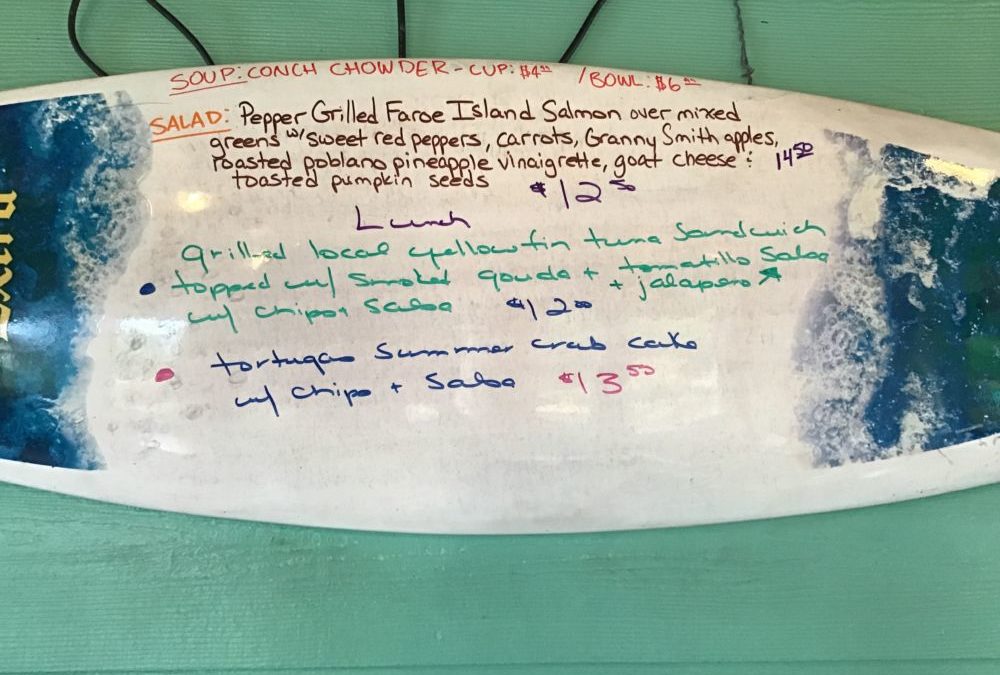 SOUP: CONCH CHOWDER - CUP: $4 /BOWL: $6
SALAD: Pepper Grilled Faroe Island Salmon over mixed
greens w/ sweet red peppers, carrots, Granny Smith apples,
roasted poblano pineapple vinaigrette, goat cheese & 14 50
toasted pumpkin seeds $12 50
Lunch
grilled local yellowfin tuna sandwich
• topped w/ smoked gouda + tomatillo salsa
w/ chips + salsa $12 00 + jalapeno
• tortugas summer crab cake
w/ chips + salsa $13 50